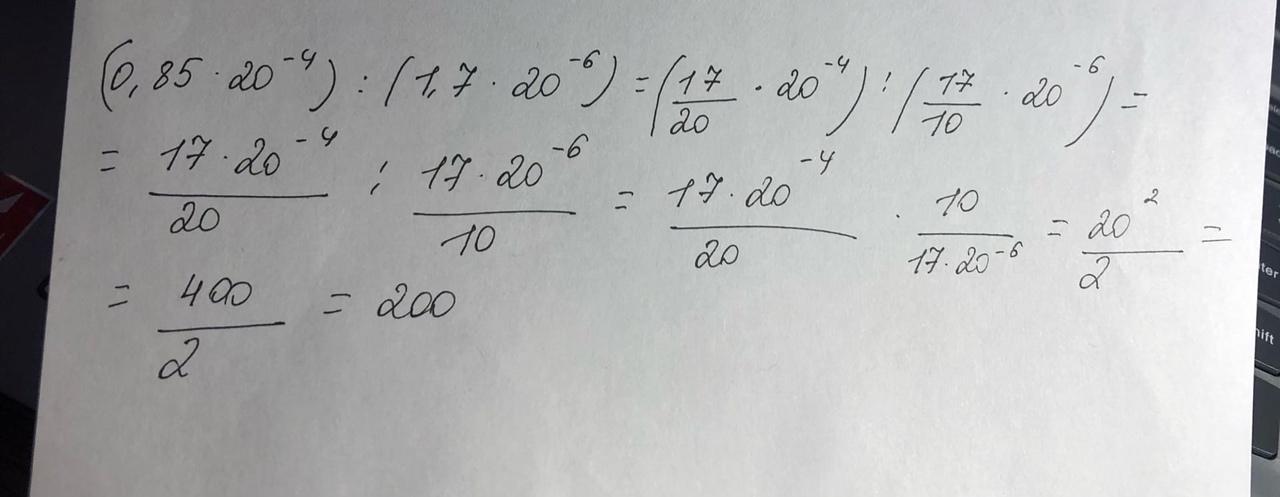 (0,85 · 20⁻⁴) : (1,7 · 20⁻⁶) = (17/20 · 20⁻⁴) : (17/10 · 20⁻⁶) =
= 17·20⁻⁴/20 : 17·20⁻⁶/10 = 17·20⁻⁴/20 · 10/17·20⁻⁶ = 20²/2 =
= 400/2 = 200